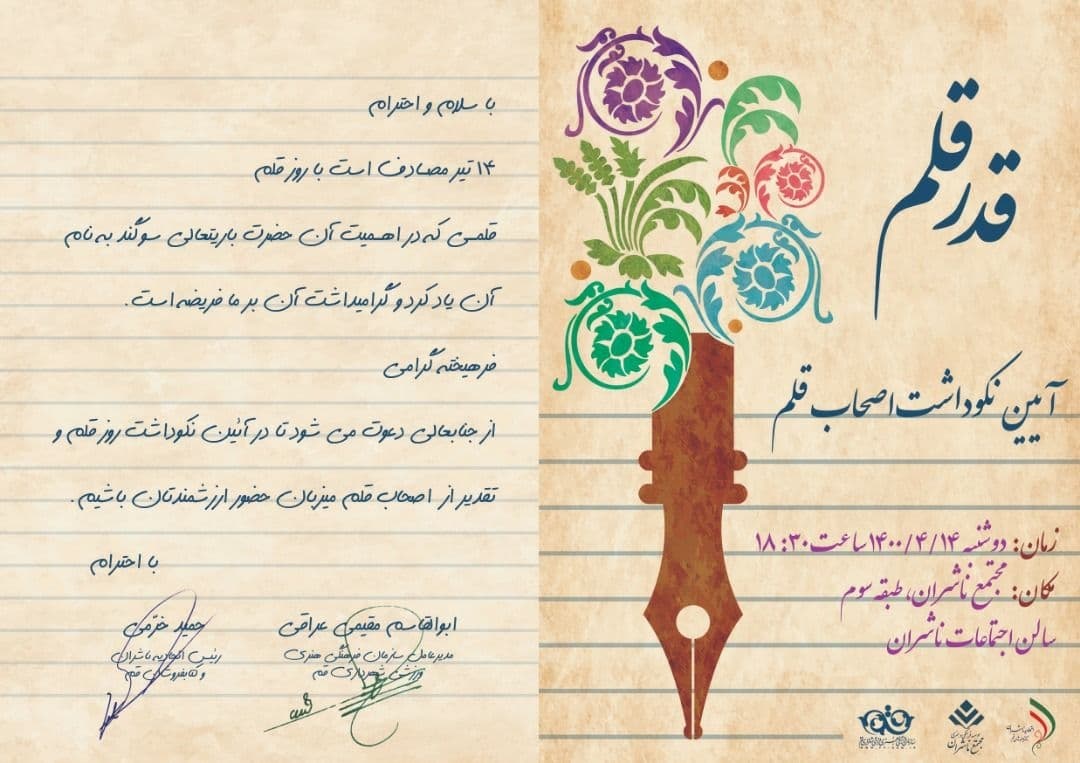 قدر قلم
آیین نکوداشت اصحاب قلم
زمان: دوشنبه ۱۴۰۰/۴/۱۴ ساعت ۱۸:۳۰
مکان: مجتمع ناشران، طبقه سوم
سالن اجتماعات ناشران
مجتمع ناشران
با سلام و احترام
۱۴ تیر مصادف است با روز قلم
قلمی که در اهمیت آن حضرت باریتعالی سوگند به نام
آن یاد کرد و گرامیداشت آن بر ما فریضه است.
فرهیخته گرامی
از جنابعالی دعوت می شود تا در آئین نکوداشت روز قلم و
تقدیر از اصحاب قلم میزبان حضور ارزشمندتان باشیم.
با احترام
ابوالقاسم مقیمی عراقی
مدیرعامل سازمان فرهنگی هنری
ورزشی شهرداری قم
حمید خرّمی
رئیس اتحادیه ناشران
و کتابفروشان قم